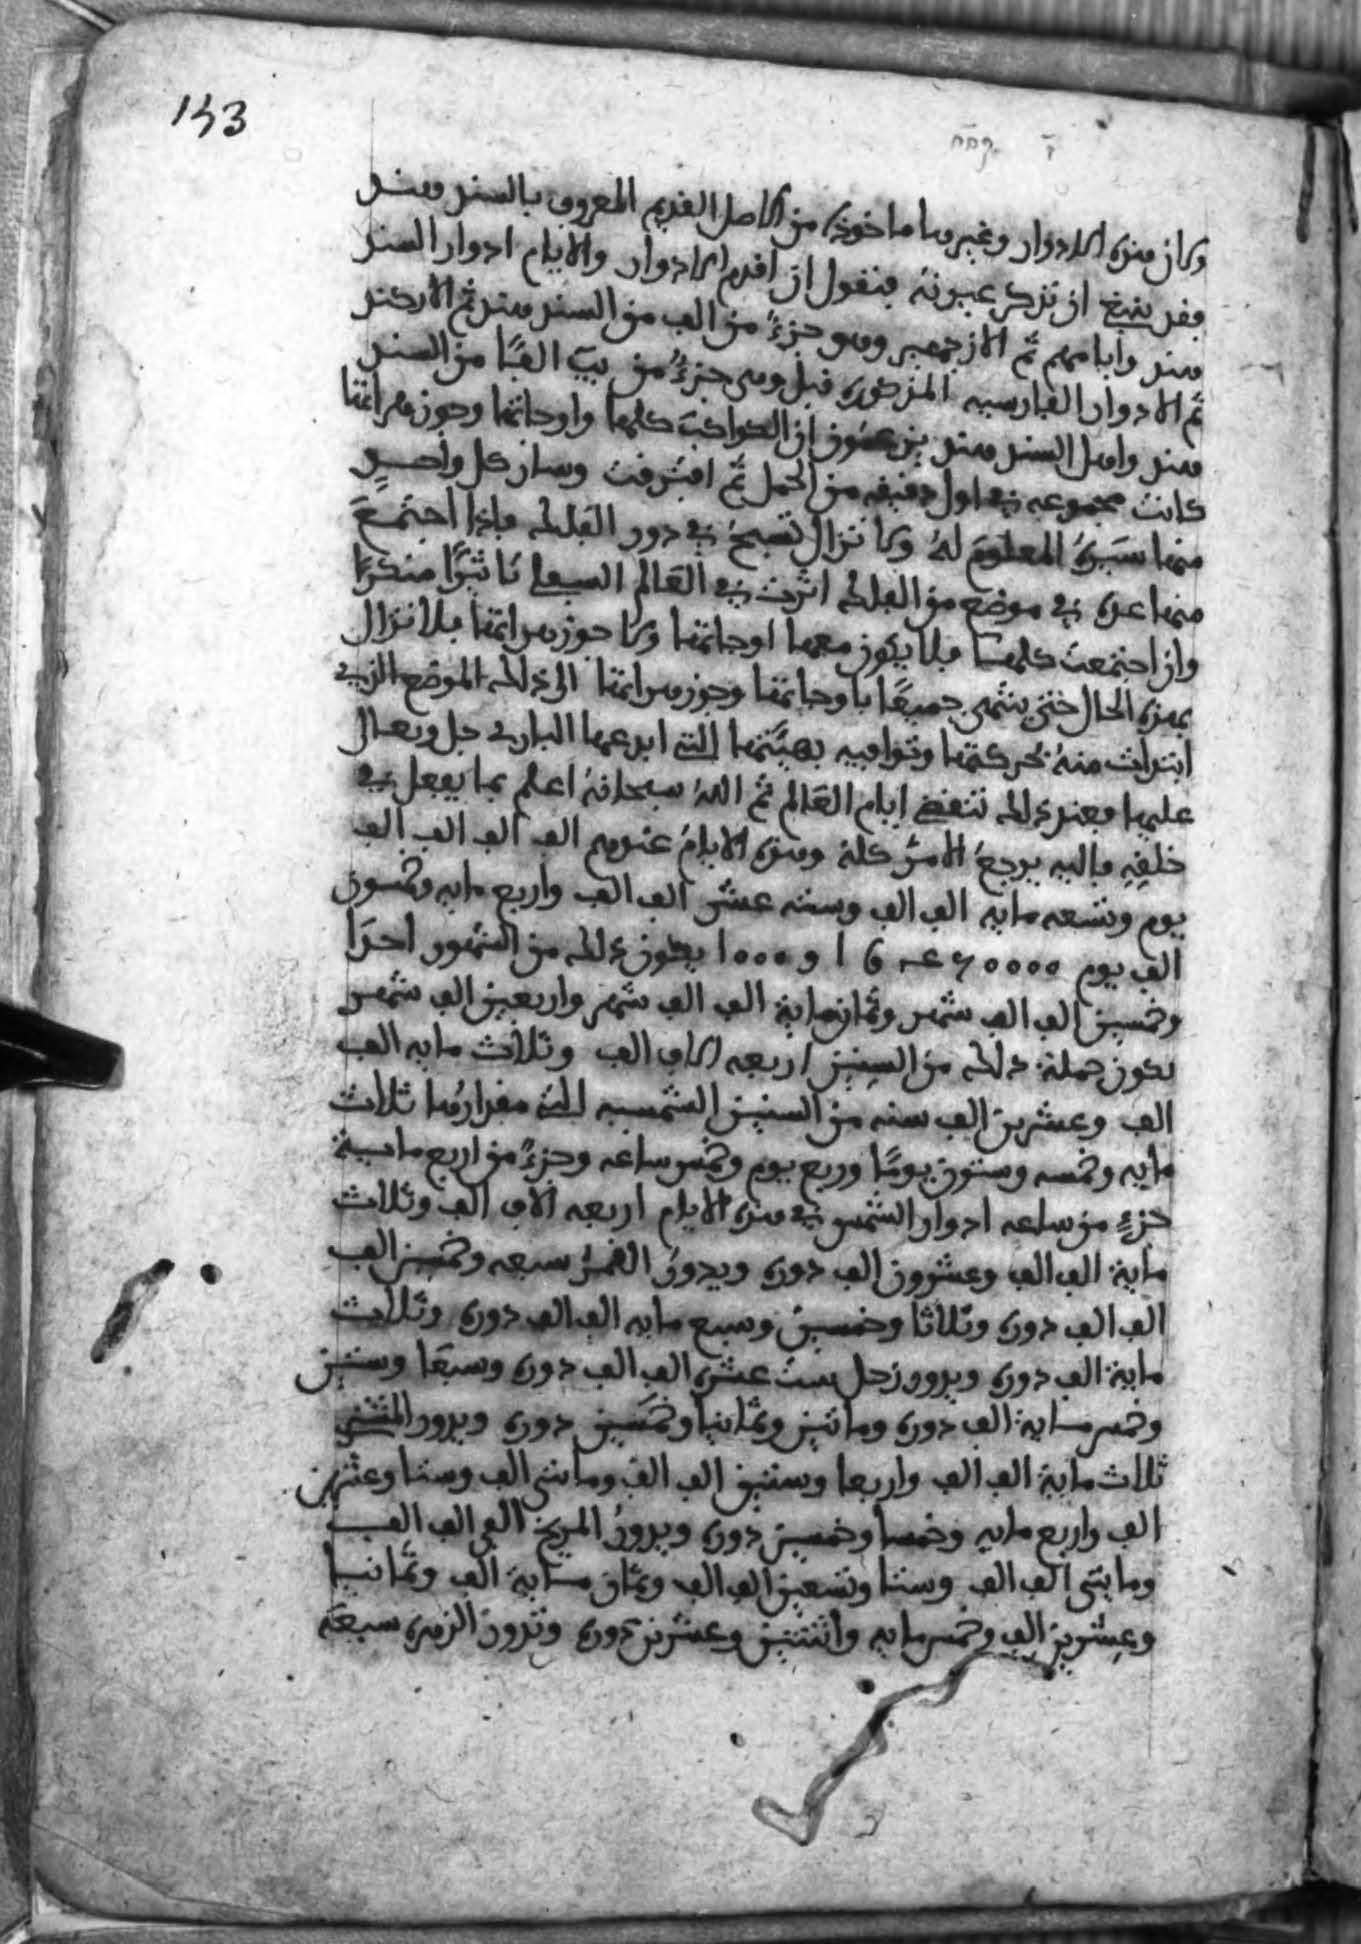 153
ولان هذه الادوار وغيرها ماخوذة من الاصل القديم المعروف بالسند هند
فقد ينبغي ان نذكر عيونه فنقول ان اقدم الادوار والايام ادوار السند
هند وايامهم ثم الازجهير وهو جزءً من الف من السند هند ثم الاركند
ثم الادوار الفارسيه المذكوره قبل وهى جزءً من يب الفًا من السند
هند واهل السند هند يزعمون ان الكواكب كلها واوجاتها وجوزهراتها
كانت مجموعه في اول دقيقه من الحمل ثم افترقت وسار كل واحد
منها سَيرَهُ المعلوم لهُ ولا تزال تسبح في دور الفلك فاذا اجتمعَ
منها عدة في موضع من الفلك اثرت في العالم السفلي تاثيرًا منكرًا
وان اجتمعت كلها فلا يكون معها اوجاتها ولا جوزهراتها فلا تزال
بهذه الحال حتى ينتهى جميعًا باوجاتها وجوزهراتها الى ذلك الموضع الذي
ابتدات منهُ بحركتها وتوافيه بهيئتها التي ابدعها الباري جل وتعالى
عليها فعند ذلك تنقضي ايام العالم ثم اللهُ سبحانهُ اعلم بما يفعل في
خلقِهِ فاليه يرجعُ الامرُ كلهُ وهذه الايامُ عندهم الف الف الف الف
يوم وتسعه مايه الف الف وسته عشر الف الف واربع مايه وخمسون
الف يوم
وخمسين الف الف شهر وثمان مايه الف الف شهر واربعين الف شهر
يكون جملة ذلك من السنين اربعه الاف الف وثلاث مايه الف
الف وعشرين الف سنه من السنين الشمسيه التي مقدارُها ثلاث
مايه وخمسه وستون يومًا وربع يوم وخمس ساعه وجزءً من اربع ماية
جزءٍ من ساعه ادوار الشمس في هذه الايام اربعه الاف الف وثلاث
ماية الف الف وعشرون الف دوره ويدورُ القمرُ سبعه وخمسين الف
الف الف دوره وثلاثا وخمسين وسبع مايه الف الف دوره وثلاث
ماية الف دوره ويدور زحل ست عشره الف الف دوره وسبعًا وستين
وخمس ماية الف دوره وماتين وثمانيا وخمسين دوره ويدور المشتري
ثلاث ماية الف الف واربعا وستين الف الف ومايتى الف وستا وعشرين
الف واربع مايه وخمسا وخمسين دوره ويدورُ المريخ الفي الف الف
ومايتى الف الف وستا وتسعين الف الف وثمان ماية الف وثمانيا
وعشرين الف وخمس مايه واثنتين وعشرين دوره وتدورُ الزهره سبعه